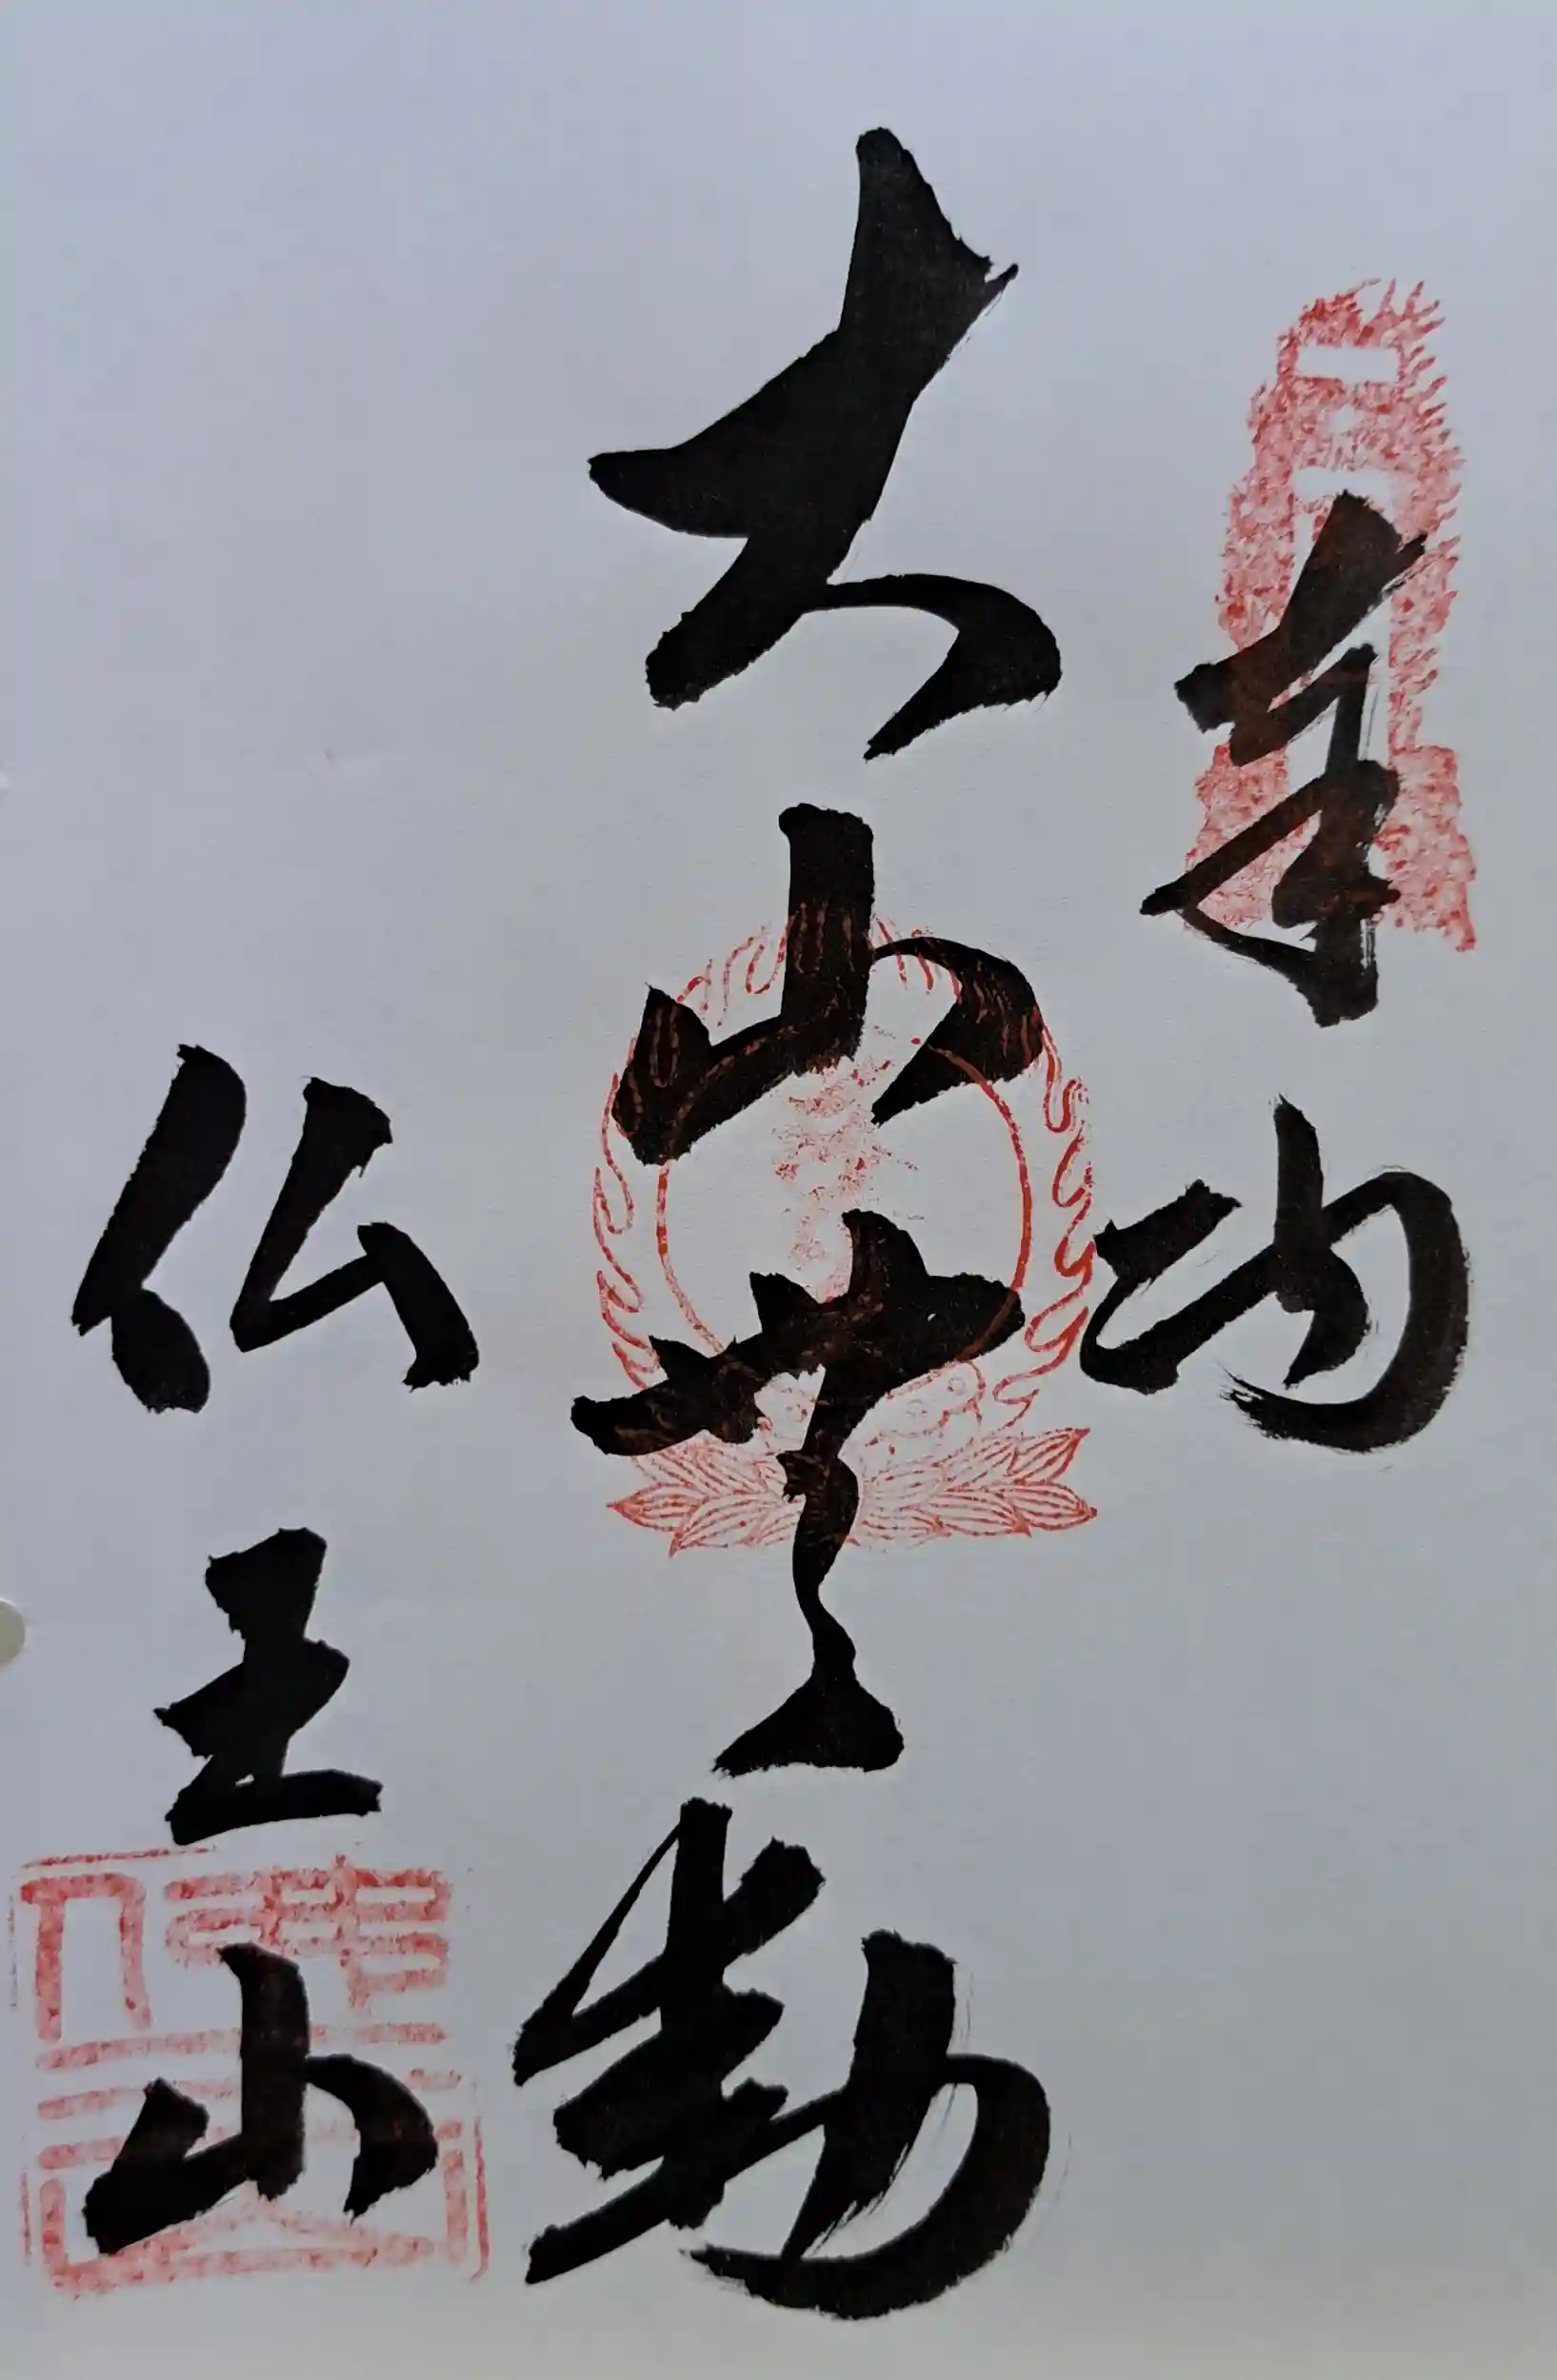 奉納
大山無動
仏王山